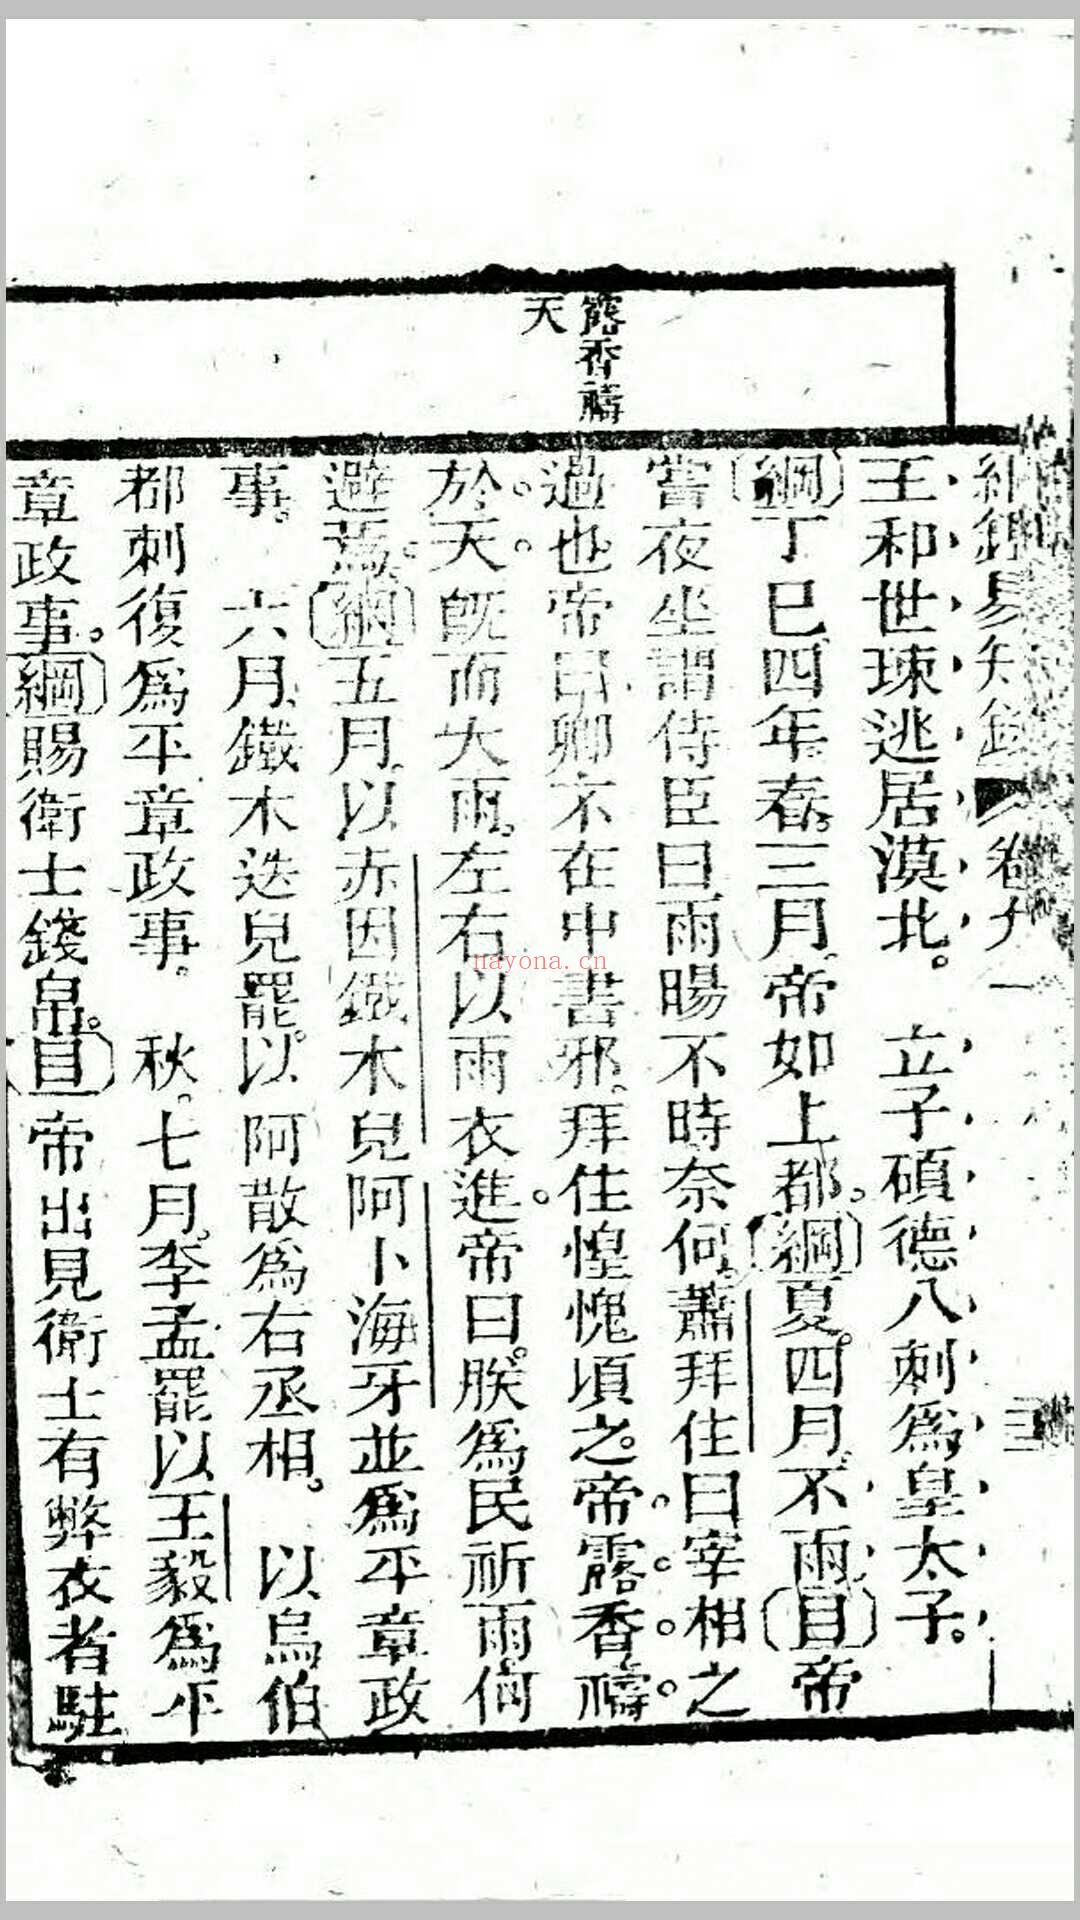 綱鑑易知錄 卷九一
王和世㻋逃居漠北。 立子碩德八刺爲皇太子。
綱丁巳四年春。三月。帝如上都。綱夏。四月。不雨目帝
嘗夜坐謂侍臣曰雨暘不時奈何。蕭拜住曰宰相之
過也。帝曰卿不在中書邪。拜住惶愧頃之。帝露香禱
於天。旣而大雨。左右以雨衣進。帝曰。朕爲民祈雨何
避焉。綱五月。以赤因鐵木兒阿卜海牙並爲平章政
事。 六月。鐵木迭兒罷。以阿散爲右丞相。 以烏伯
都刺復爲平章政事。 秋。七月。李孟罷以王毅爲平
章政事。綱賜衛士錢帛。目帝出見衛士有弊衣者駐
露香禱
天
nayona.cn